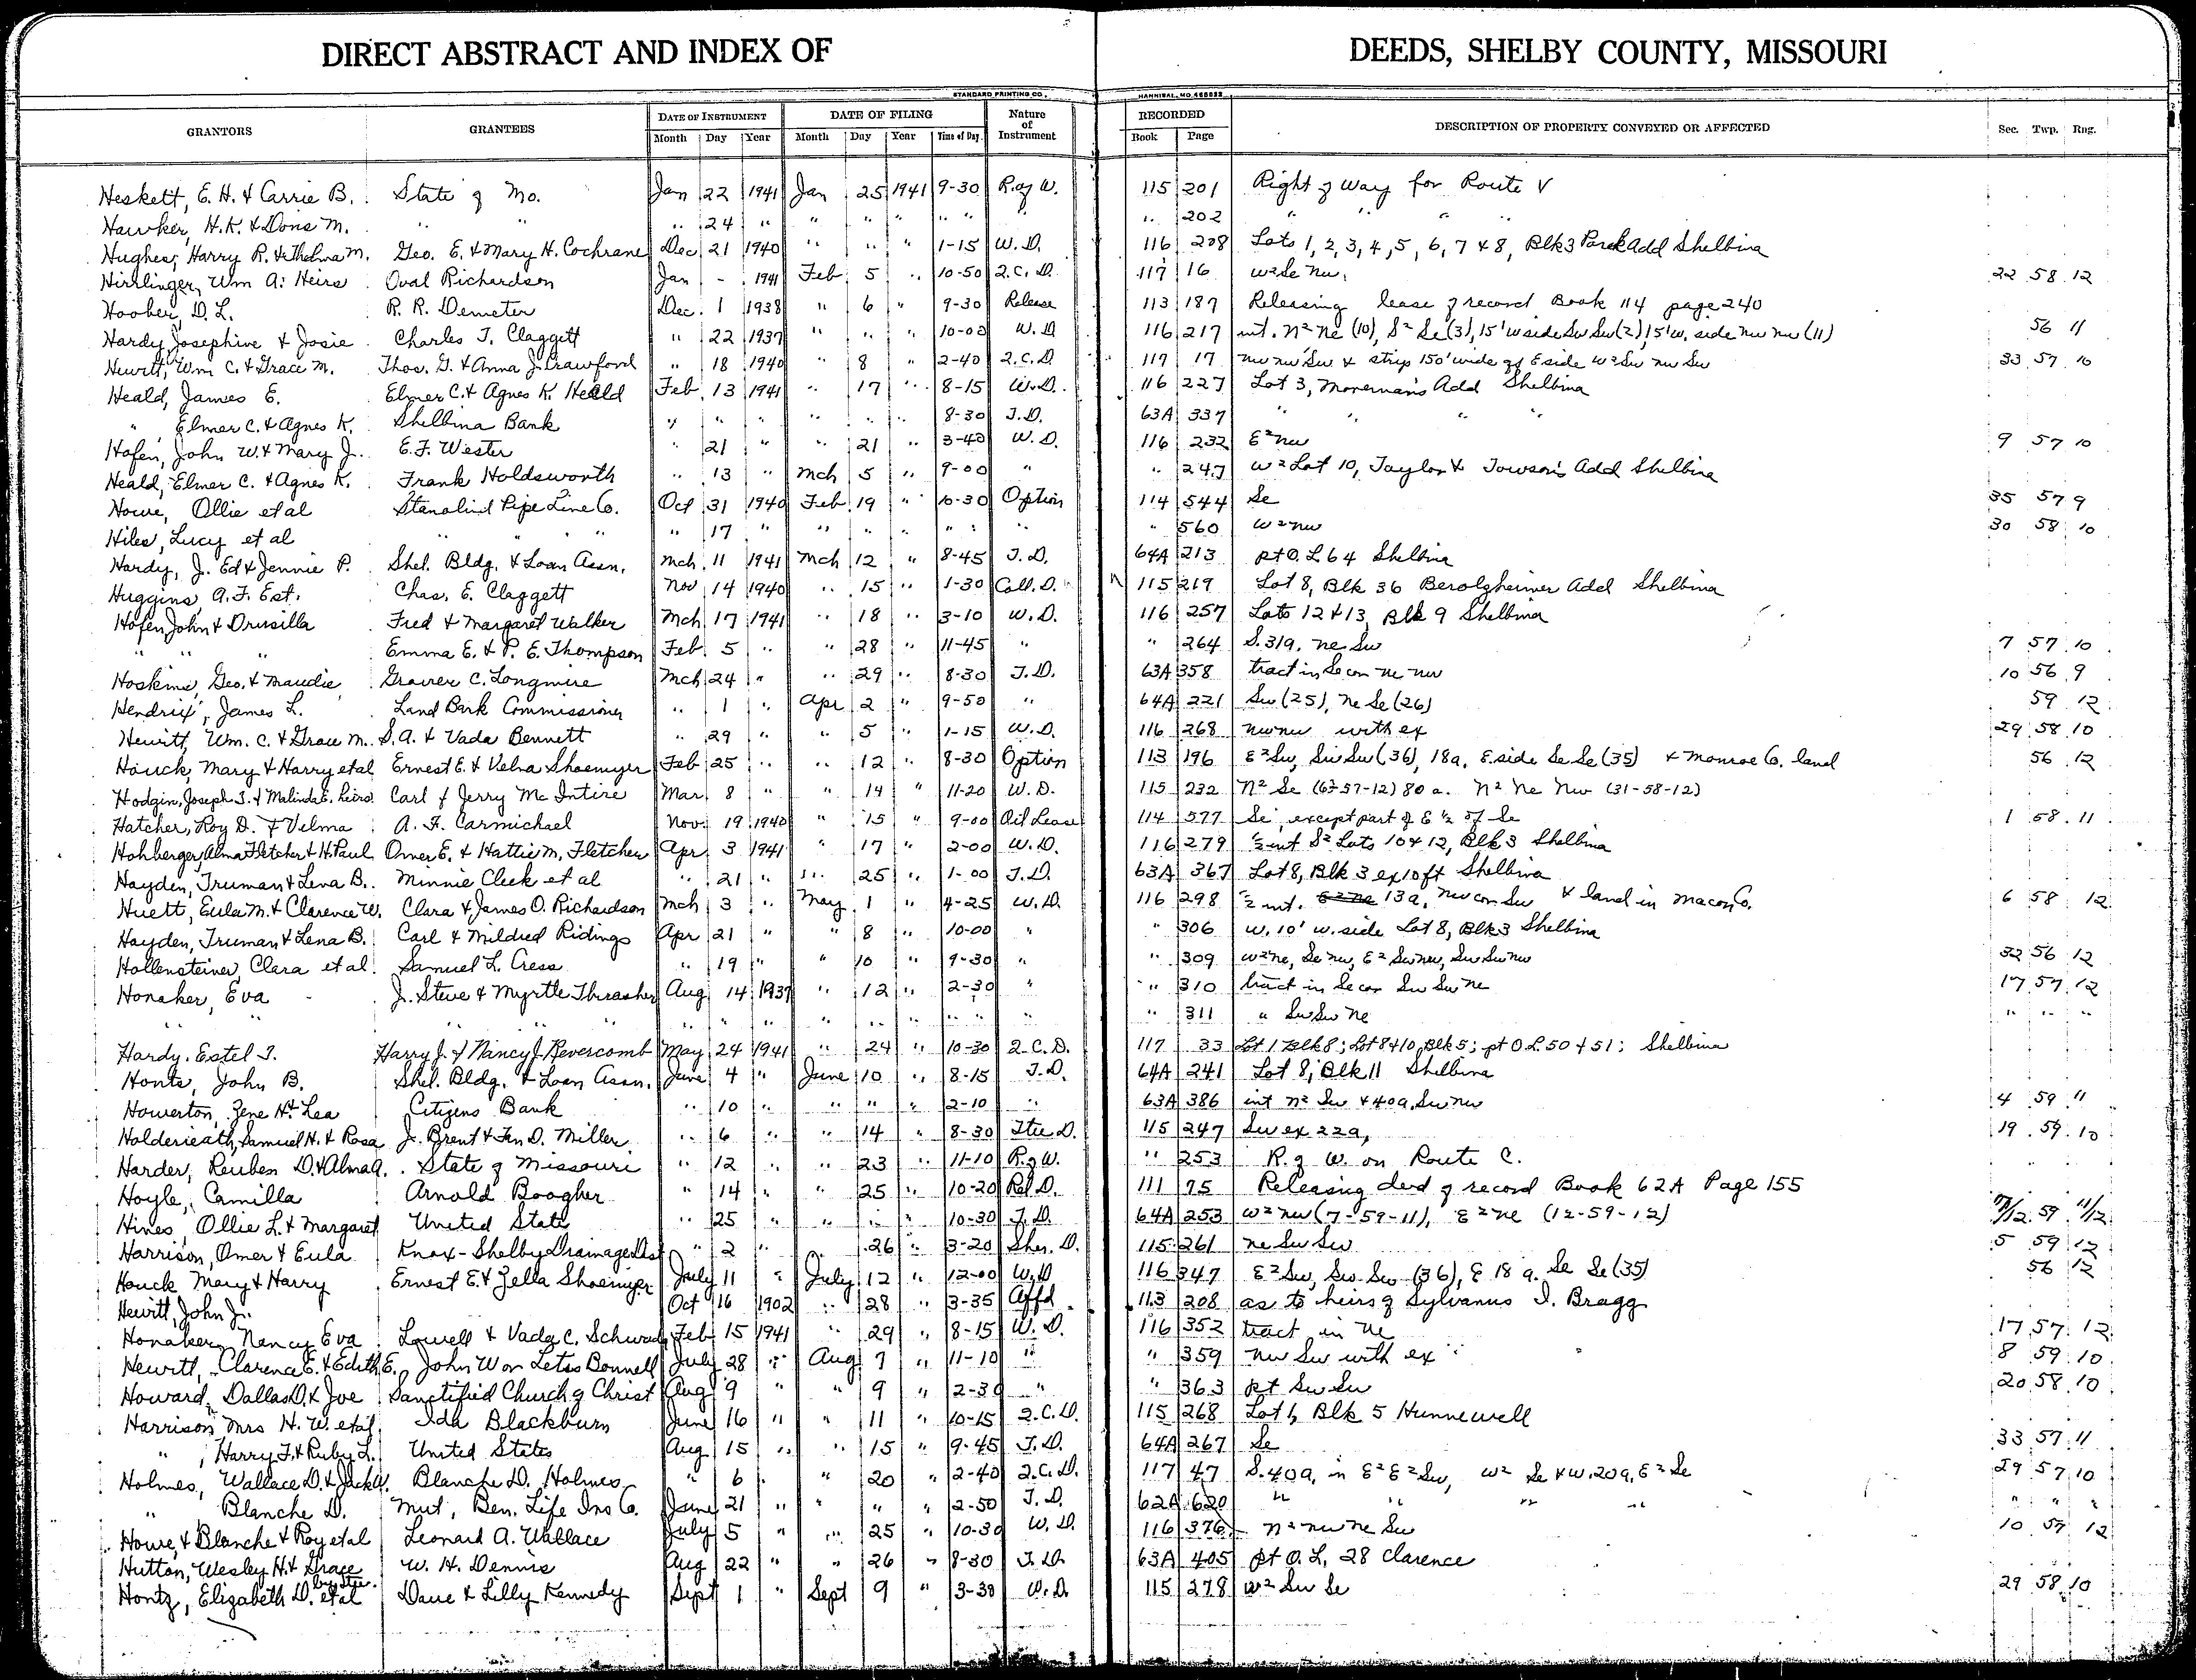 DIRECT ABSTRACT AND INDEX OF DEEDS, SHELBY COUNTY, MISSOURI
STANDARD PRINTING CO., HANNIBAL, MO.
GRANTORS GRANTEES DATE OF INSTRUMENT DATE OF FILING Nature of Instrument RECORDED DESCRIPTION OF PROPERTY CONVEYED OR AFFECTED Sec. Twp. Rng.
Month Day Year Month Day Year Time of Day Book Page
Heskett, E. H. & Carrie B. State of Mo. Jan 22 1941 Jan 25 1941 9-30 R. of W. 115 201 Right of Way for Route V
Hawker, H. K. & Doris M. " " " 24 " " " " " " " " 202 " " " "
Hughes, Harry R. & Thelma M. Geo. E. & Mary H. Cochrane Dec 21 1940 " " " 1-15 W. D. 116 208 Lots 1, 2, 3, 4, 5, 6, 7 & 8, Blk 3 Park Add Shelbina
Hirrlinger, Wm A. Heirs Oval Richardson Jan - 1941 Feb 5 " 10-50 Q. C. D. 117 16 W2 Se Nw. 22 58 12
Hoober, D. L. R. R. Demeter Dec. 1 1938 " 6 " 9-30 Release 113 187 Releasing lease of record Book 114 page 240
Hardy, Josephine & Josie Charles T. Claggett " 22 1937 " " " 10-00 W. D 116 217 int. N2 Ne (10), S2 Se (3), 15' W side Sw Sw (2), 15' W. side Nw Nw (11) 56 11
Hewitt, Wm C. & Grace M. Thos. G. & Anna J. Crawford " 18 1940 " 8 2-40 Q. C. D. 117 17 Nw Nw Sw & strip 150' wide off E side W2 Sw Nw Sw 33 57 10
Heald, James E. Elmer C. & Agnes K. Heald Feb. 13 1941 " 17 " 8-15 W. D. 116 227 Lot 3, Add Shelbina
" Elmer C. & Agnes K. Shelbina Bank " " " " " " 8-30 T. D. 63A 337 " " " "
Hofen, John W. & Mary J. E. F. Wester " 21 " " 21 " 3-40 W. D. 116 232 E2 Nw 9 57 10
Heald, Elmer C. & Agnes K. Frank Holdsworth " 13 " Mch 5 " 9-00 " " 247 W2 Lot 10, Taylor & Towson's Add Shelbina
Howe, Ollie et al Stanolind Pipe Line Co. Oct 31 1940 Feb 19 " 10-30 Option 114 544 Se 35 57 9
Hiles, Lucy et al " " " " 17 " " " " " " " 560 W2 Nw 30 58 10
Hardy, J. Ed & Jennie P. Shel. Bldg. & Loan Assn. Mch. 11 1941 Mch 12 " 8-45 T. D. 64A 213 pt O. L 64 Shelbina
Huggins, A. F. Est. Chas. E. Claggett Nov 14 1940 " 15 " 1-30 Coll. D. 115 219 Lot 8, Blk 36 Berolzheimer Add Shelbina
Hofen, John & Drusilla Fred & Margaret Walker Mch 17 1941 " 18 " 3-10 W. D. 116 257 Lots 12 & 13, Blk 9 Shelbina
" " " Emma E. & P. E. Thompson Feb. 5 " " 28 " 11-45 " " 264 S. 31a. Ne Sw 7 57 10
Hoskins, Geo. & Maudie Grover C. Longmire Mch 24 " " 29 " 8-30 T. D. 63A 358 tract in Se cor Ne Nw 10 56 9
Hendrix, James L. Land Bank Commissioner " 1 " Apr 2 " 9-50 " 64A 221 Sw (25), Ne Se (26) 59 12
Hewitt, Wm. C. & Grace M. S. A. & Vada Bennett " 29 " " 5 " 1-15 W. D. 116 268 Nw Nw with ex 29 58 10
Houck, Mary & Harry et al Ernest E. & Velna Shoemyer Feb 25 " " 12 " 8-30 Option 113 196 E2 Sw, Sw Sw (36), 18a. E side Se Se (35) & Monroe Co. land 56 12
Hodgin, Joseph T. & Malinda E. heirs Carl & Jerry McIntire Mar. 8 " " 14 " 11-20 W. D. 115 232 N2 Se (6-57-12) 80 a. N2 Ne Nw (31-58-12)
Hatcher, Roy D. & Velma A. F. Carmichael Nov. 19 1940 " 15 " 9-00 Oil Lease 114 577 Se, except part of E ½ of Se 1 58 11
Hohberger, Alma Fletcher & H. Paul Omer E. & Hattie M. Fletcher Apr 3 1941 " 17 " 2-00 W. D. 116 279 ½ int S2 Lots 10 & 12, Blk 3 Shelbina
Hayden, Truman & Lena B. Minnie Cleek et al " 21 " " 25 " 1-00 T. D. 63A 367 Lot 8, Blk 3 ex 10 ft Shelbina
Huett, Eula M. & Clarence W. Clara & James O. Richardson Mch 3 " May 1 " 4-25 W. D. 116 298 ½ int. E2 Ne 13a, Nw cor Sw & land in Macon Co. 6 58 12
Hayden, Truman & Lena B. Carl & Mildred Ridings Apr 21 " " 8 " 10-00 " " 306 W. 10' W. side Lot 8, Blk 3 Shelbina
Hollensteiner, Clara et al. Samuel L. Cress " 19 " " 10 9-30 " " 309 W2 Ne, Se Nw, E2 Sw Nw, Sw Sw Nw 32 56 12
Honaker, Eva J. Steve & Myrtle Thrasher Aug 14 1937 " 12 " 2-30 " " 310 tract in Se cor Sw Sw Ne 17 57 12
" " " " " " " " " " " " " " " 311 " Sw Sw Ne " " "
Hardy, Estel T. Harry J. & Nancy J. Revercomb May 24 1941 " 24 " 10-30 Q. C. D. 117 33 Lot 1 Blk 8; Lot 8 & 10, Blk 5; pt O L 50 & 51; Shelbina
Honts, John B. Shel. Bldg. & Loan Assn. June 4 " June 10 " 8-15 T. D. 64A 241 Lot 8, Blk 11 Shelbina
Howerton, Zene H. & Lea Citizens Bank " 10 " " " " 2-10 " 63A 386 int N2 Sw & 40a, Sw Nw 4 59 11
Holderieath, Samuel H. & Rosa J. Brent & Fan D. Miller " 6 " " 14 " 8-30 Tte D. 115 247 Sw ex 22a, 19 59 10
Harder, Reuben D. & Alma A. State of Missouri " 12 " " 23 " 11-10 R. of W. " 253 R. of W. on Route C.
Hoyle, Camilla Arnold Boogher " 14 " " 25 " 10-20 Rel D. 111 75 Releasing deed of record Book 62A Page 155
Hines, Ollie L. & Margaret United State " 25 " " " " 10-30 T. D. 64A 253 W2 Nw (7-59-11), E2 Ne (12-59-12) 7/12 59 11/12
Harrison, Omer & Eula Knox-Shelby Drainage Dist " 2 " 26 " 3-20 Sher. D. 115 261 Ne Sw Sw 5 59 12
Houck Mary & Harry Ernest E. & Zella Shoemyer July 11 " July 12 " 12-00 W. D 116 347 E2 Sw, Sw Sw (36), E 18 a. Se Se (35) 56 12
Hewitt, John J. Oct 16 1902 " 28 " 3-35 Affd. 113 208 as to heirs of Sylvanus I. Bragg
Honaker, Nancy Eva Lowell & Vada C. Feb 15 1941 " 29 " 8-15 W. D. 116 352 tract in Ne 17 57 12
Hewitt, Clarence E. & Edith E. John W or Letss Bonnell July 28 " Aug 7 " 11-10 " " 359 Nw Sw with ex 8 59 10
Howard, Dallas D. & Joe Sanctified Church of Christ Aug 9 " " 9 " 2-30 " " 363 pt Sw Sw 20 58 10
Harrison, Mrs H. W. et al Ida Blackburn June 16 " " 11 " 10-15 Q. C. D. 115 268 Lot 1, Blk 5 Hunnewell
" , Harry F. & Ruby L. United States Aug 15 " " 15 " 9-45 T. D. 64A 267 Se 33 57 11
Holmes, Wallace D. & Jack W. Blanche D. Holmes " 6 " " 20 " 2-40 Q. C. D. 117 47 S. 40a, in E2 E2 Sw, W2 Se & W. 20a, E2 Se 29 57 10
" Blanche D. Mut, Ben. Life Ins Co. June 21 " " " " 2-50 T. D. 62A 620 " " " " " " "
Howe, Blanche & Roy et al Leonard A. Wallace July 5 " " 25 " 10-30 W. D. 116 376 N2 Nw Ne Sw 10 57 12
Hutton, Wesley H. & Grace W. H. Dennis Aug 22 " " 26 " 8-30 T. D. 63A 405 pt O. L, 28 Clarence
Hontz, Elizabeth D. et al by Tte. Dave & Lilly Kennedy Sept 1 " Sept 9 " 3-30 W. D. 115 278 W2 Sw Se 29 58 10